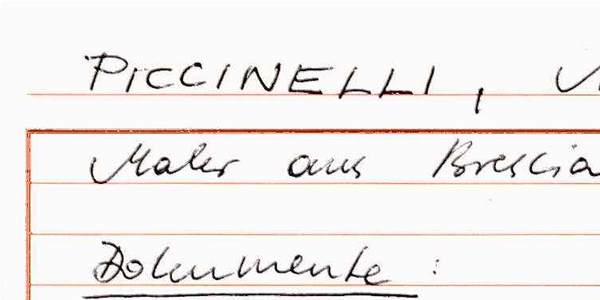 PICCINELLI,
Maler aus Brescia
Dokumente: